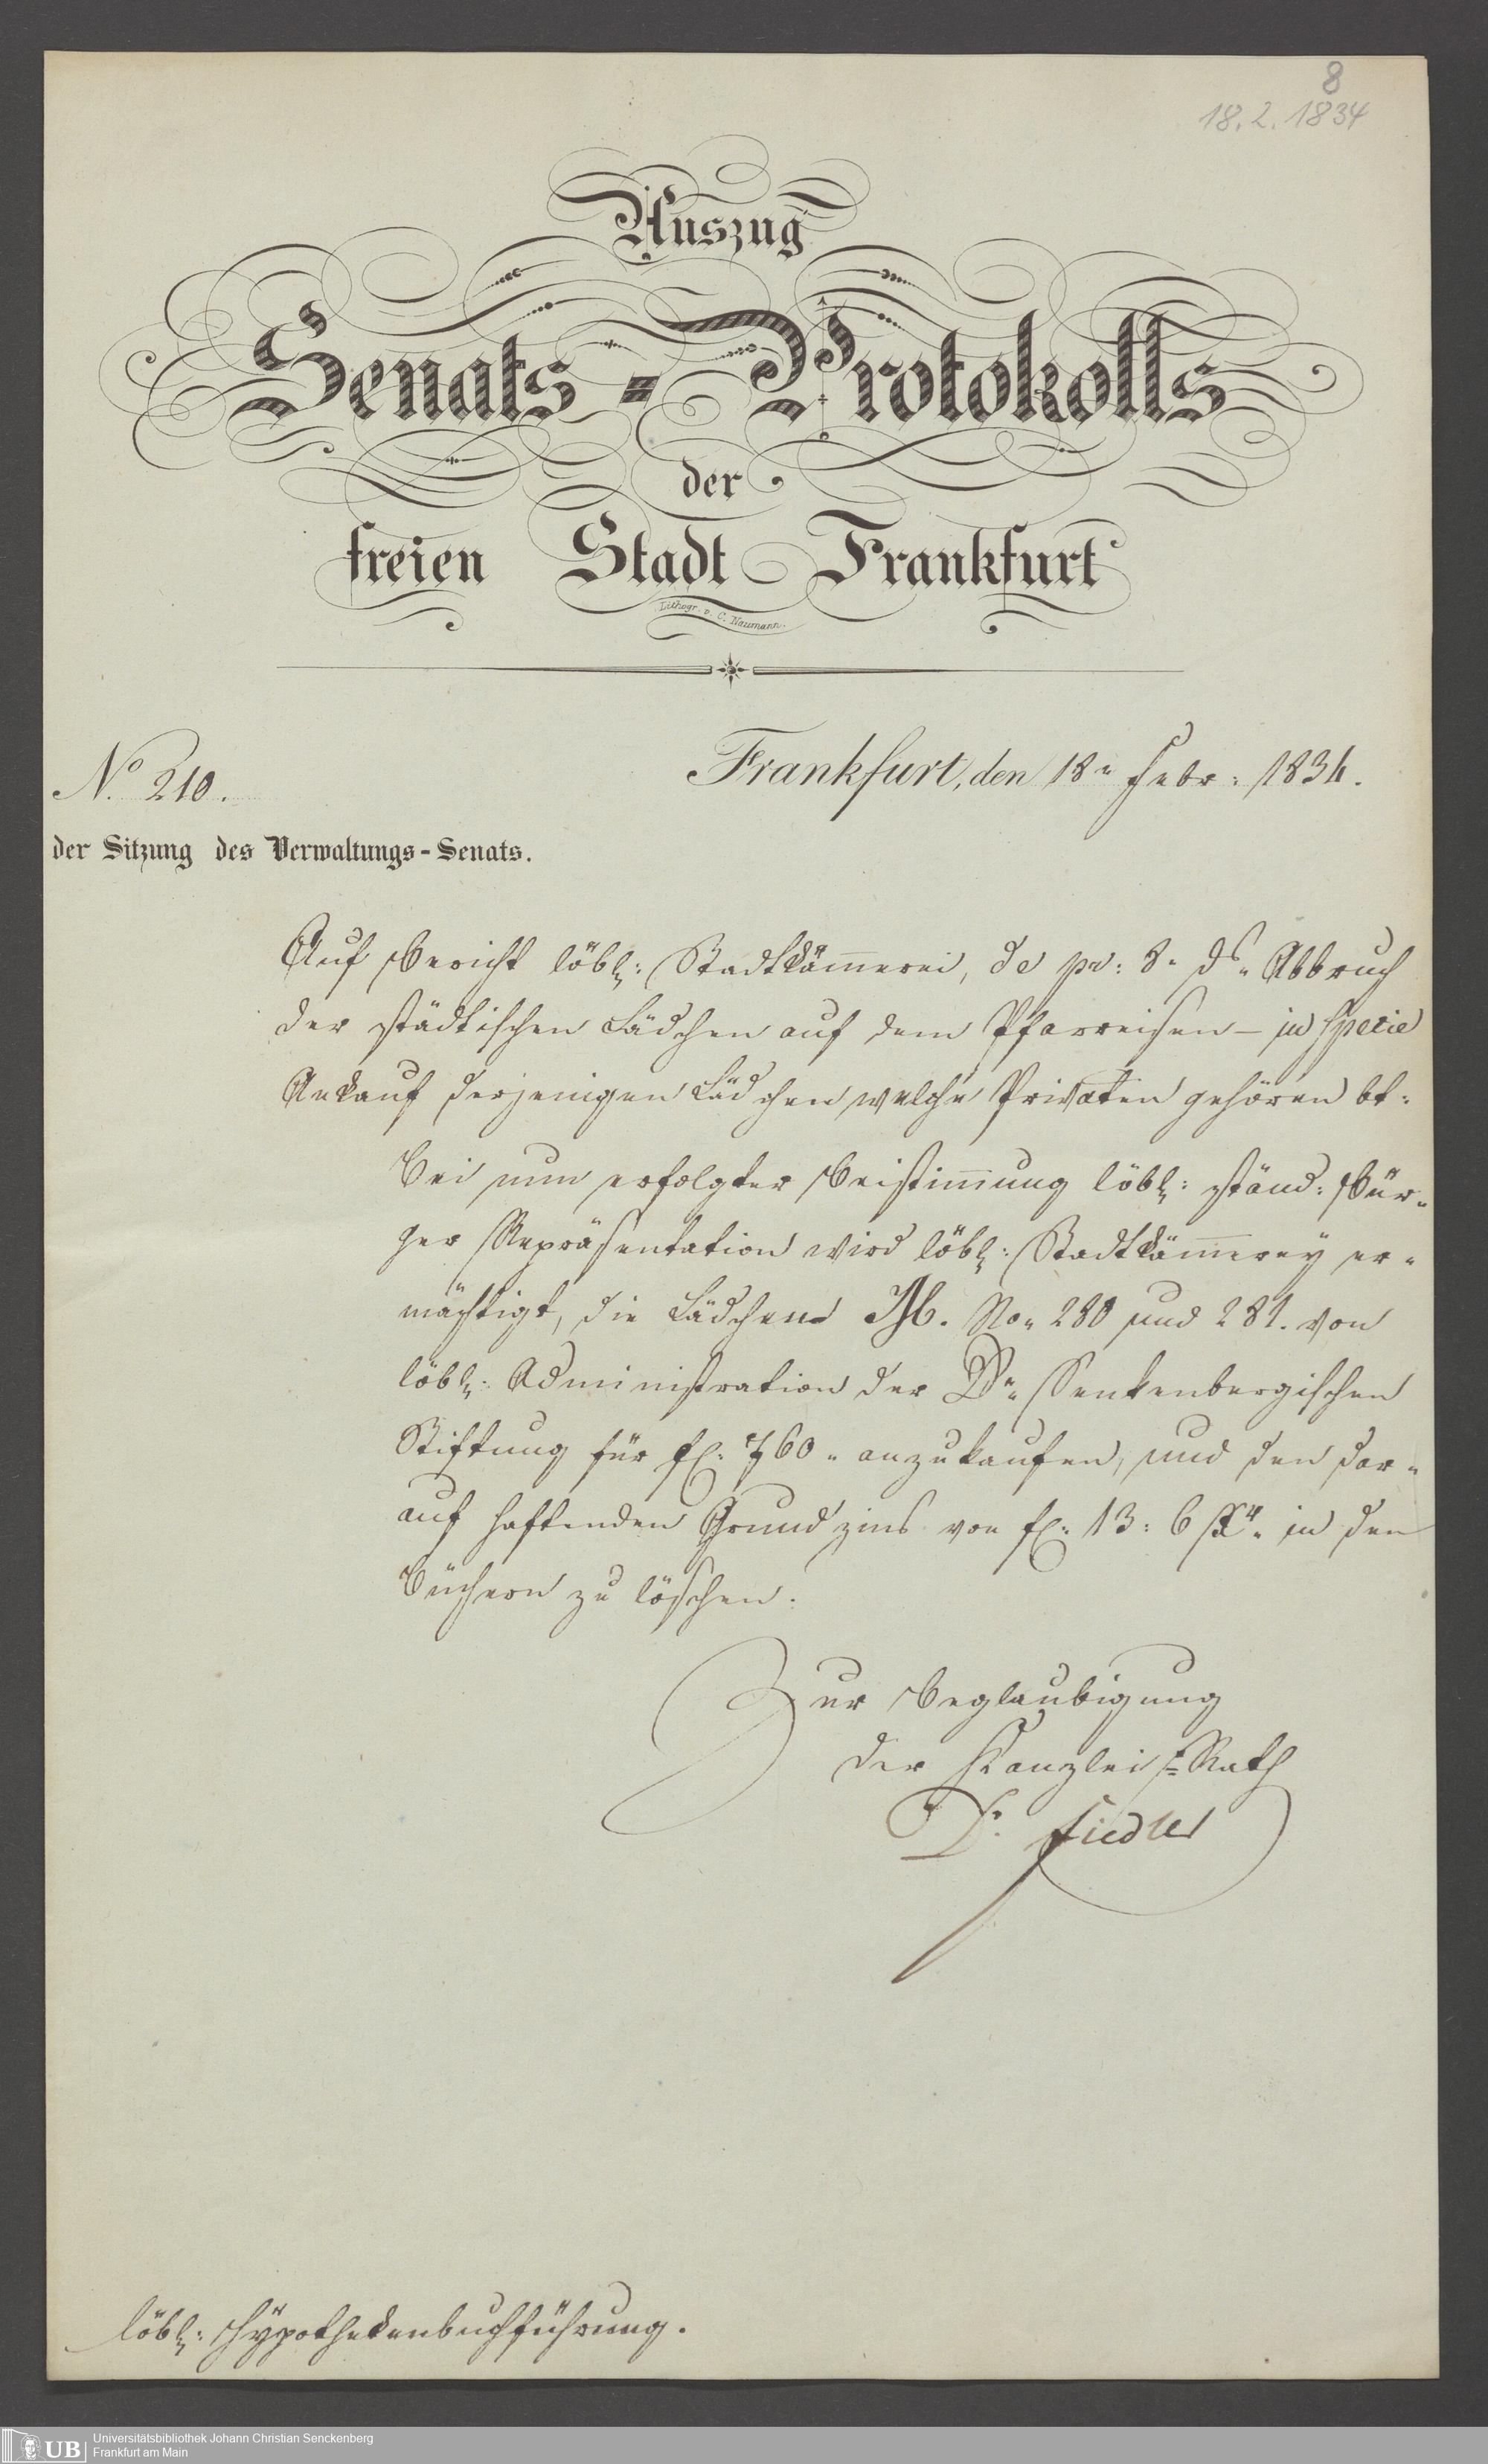 8
18.2.1834
Auszug
Senats-Protokolls
der
freien Stadt Frankfurt
Lithogr. v. C. Naumann.
Frankfurt, den 18n Febr: 1834.
No 210.
der Sitzung des Verwaltungs-Senats.
Auf Bericht löbl: Stadtkämmerei, de pr: 8n ds Abbruch
der städtischen Lädchen auf dem Pfarreisen – in specie
Ankauf derjenigen Lädchen welche Privaten gehören bt:
Bei nun erfolgter Beistimmung löbl: ständ: Bür-
ger Repräsentation wird löbl: Stadtkämmerey er-
mächtigt, die Lädchen No 280 und 281. von
löbl: Administration der Dr Senkenbergischen
Stiftung für fl: 760 anzukaufen, und den dar-
auf haftenden Grundzins von fl: 13: 6 Xr in den
Büchern zu löschen.
Zur Beglaubigung
Der Kanzlei-Rath
Dr. Fiedler
löbl: Hypothekenbuchführung.
UB
Universitätsbibliothek Johann Christian Senckenberg
Frankfurt am Main